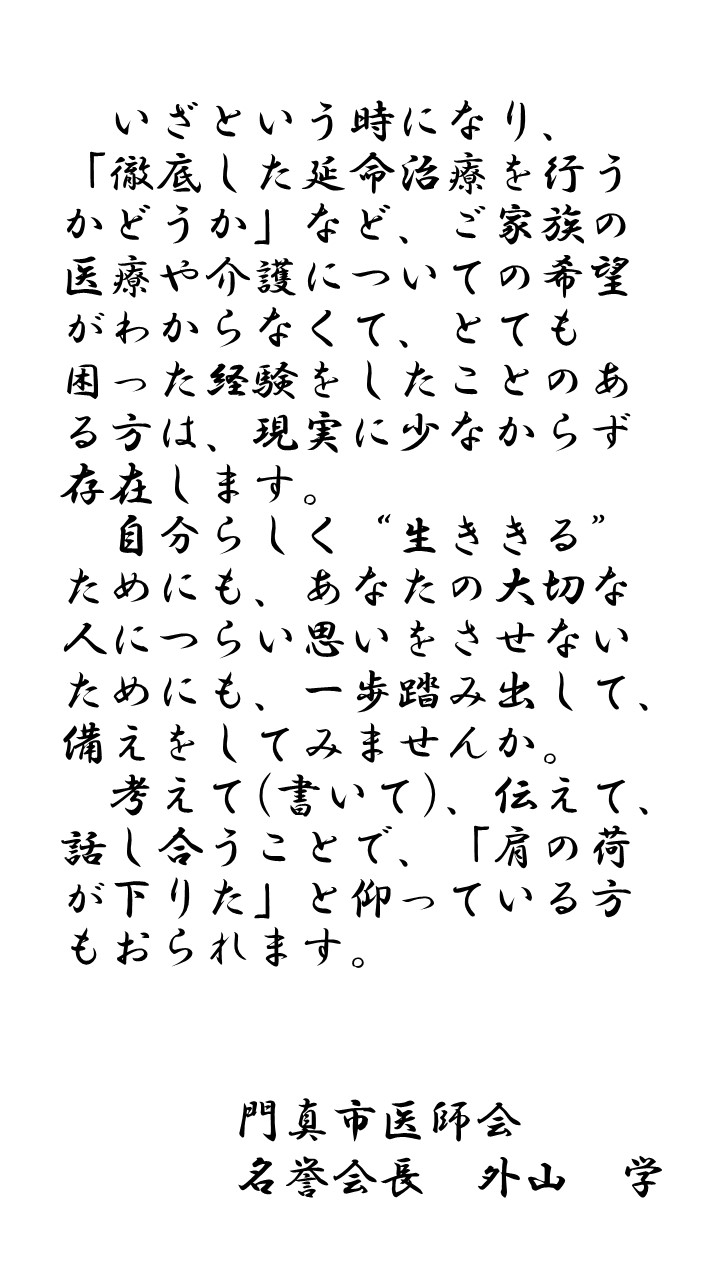 いざという時になり、
「徹底した延命治療を行う
かどうか」など、ご家族の
医療や介護についての希望
がわからなくて、とても
困った経験をしたことのあ
る方は、現実に少なからず
存在します。
　自分らしく“生ききる”
ためにも、あなたの大切な
人につらい思いをさせない
ためにも、一歩踏み出して、
備えをしてみませんか。
　考えて(書いて)、伝えて、
話し合うことで、「肩の荷
が下りた」と仰っている方
もおられます。
門真市医師会
名誉会長　外山　学